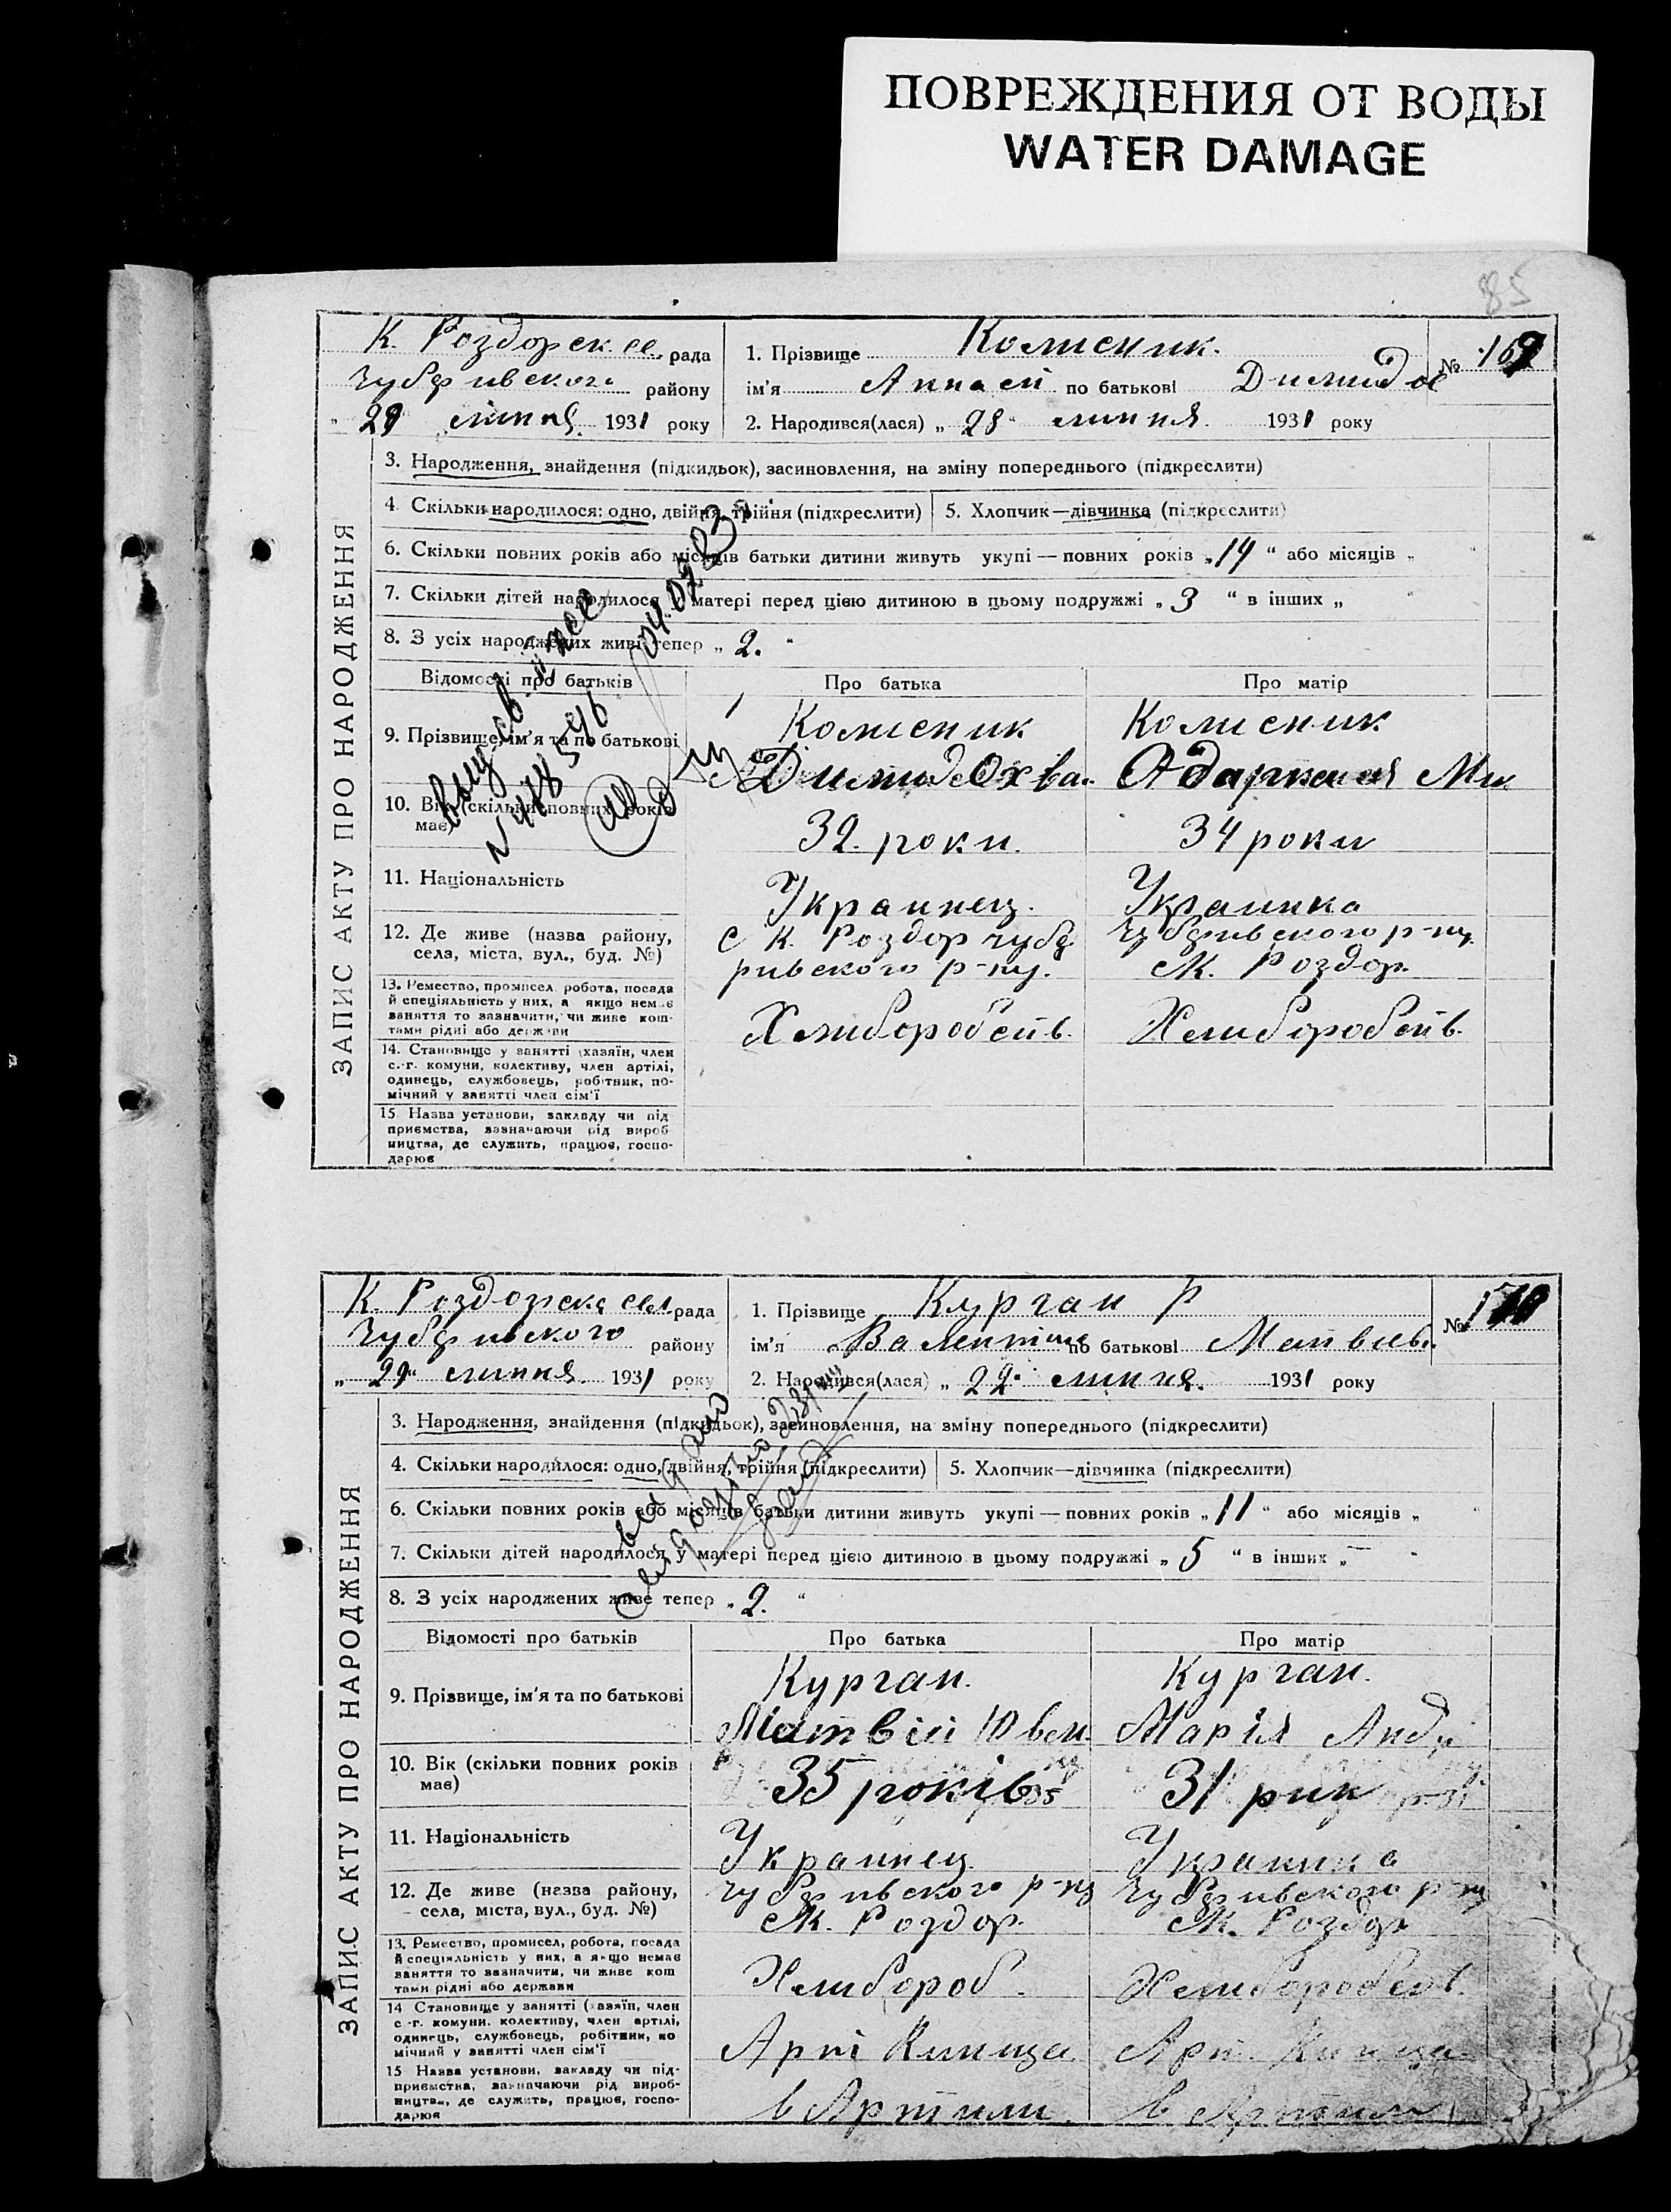 ПОВРЕЖДЕНИЯ ОТ ВОДЫ
WATER DAMAGE
85
К. Роздорск. се. рада
району
29 липня 1931 року
1. Прізвище Колисник.
ім'я по батькові Димидов
№ 169
2. Народився(лася) „ 28 " липня 1931 року
ЗАПИС АКТУ ПРО НАРОДЖЕННЯ
3. Народження, знайдення (підкидьок), засиновлення, на зміну попереднього (підкреслити)
4 Скільки народилося: одно, двійня, трійня (підкреслити)
5. Хлопчик—дівчинка (підкреслити)
6. Скільки повних років або місяців батьки дитини живуть укупі — повних років „ 14 “ або місяців „ “
7. Скільки дітей народилося у матері перед цією дитиною в цьому подружжі „ 3 “ в інших „ “
8. З усіх народжених живі тепер „ 2. “
04.07.83
Відомості про батьків
Про батька
Про матір
9. Прізвище, ім'я та по батькові
Колисник
Колисник
10. Вік (скільки повних років
має)
32. роки.
34 роки
11. Національність
Украинец.
Украинка
12. Де живе (назва району,
села, міста, вул., буд. №)
с К. Роздор
ривского р-ну.
р-ну.
М. Роздор.
13. Ремество, промисел, робота, посада
й спеціяльність у них, а якщо немає
заняття то зазначити, чи живе кош-
тами рідні або держави
Хлиборобств.
Хлиборобств.
14. Становище у занятті (хазяїн, член
с.-г. комуни, колективу, член артілі,
одинець, службовець, робітник, по-
мічний у занятті член сім'ї
15 Назва установи, закладу чи під
приємства, зазначаючи рід вироб
ництва, де служить, працює, госпо-
дарює
К. Роздорска сел. рада
району
„ 29 “ липня. 1931 року
1. Прізвище Курган Р
ім'я Валентина по батькові Матвієв.
№ 170
2. Народився(лася) „ 22 " липня. 1931 року
ЗАПИС АКТУ ПРО НАРОДЖЕННЯ
3. Народження, знайдення (підкидьок), засиновлення, на зміну попереднього (підкреслити)
4. Скільки народилося: одно, двійня, трійня (підкреслити)
5. Хлопчик—дівчинка (підкреслити)
6. Скільки повних років або місяців батьки дитини живуть укупі — повних років „ 11 “ або місяців „ “
7. Скільки дітей народилося у матері перед цією дитиною в цьому подружжі „ 5 “ в інших „ — “
8. З усіх народжених живе тепер „ 2. “
Відомості про батьків
Про батька
Про матір
9. Прізвище, ім'я та по батькові
Курган.
Курган.
Матвій
Марія Андр
10. Вік (скільки повних років
має)
35 років
31 рик
11. Національність
Украинец
Украинка
12. Де живе (назва району,
села, міста, вул., буд. №)
р-ну
р-ну
М. Роздор.
М. Роздор
13. Ремество, промисел, робота, посада
й спеціяльність у них, а якщо немає
заняття то зазначити, чи живе кош
тами рідні або держави
Хлибороб.
Хлиборобств.
14 Становище у занятті (хазяїн, член
с -г. комуни. колективу, член артілі,
одинець, службовець, робітник, по
мічний у занятті член сім'ї
15 Назва установи, закладу чи під-
приємства, зазначаючи рід вироб-
ництва, де служить, працює, госпо-
дарює
в Артили.
в Артили